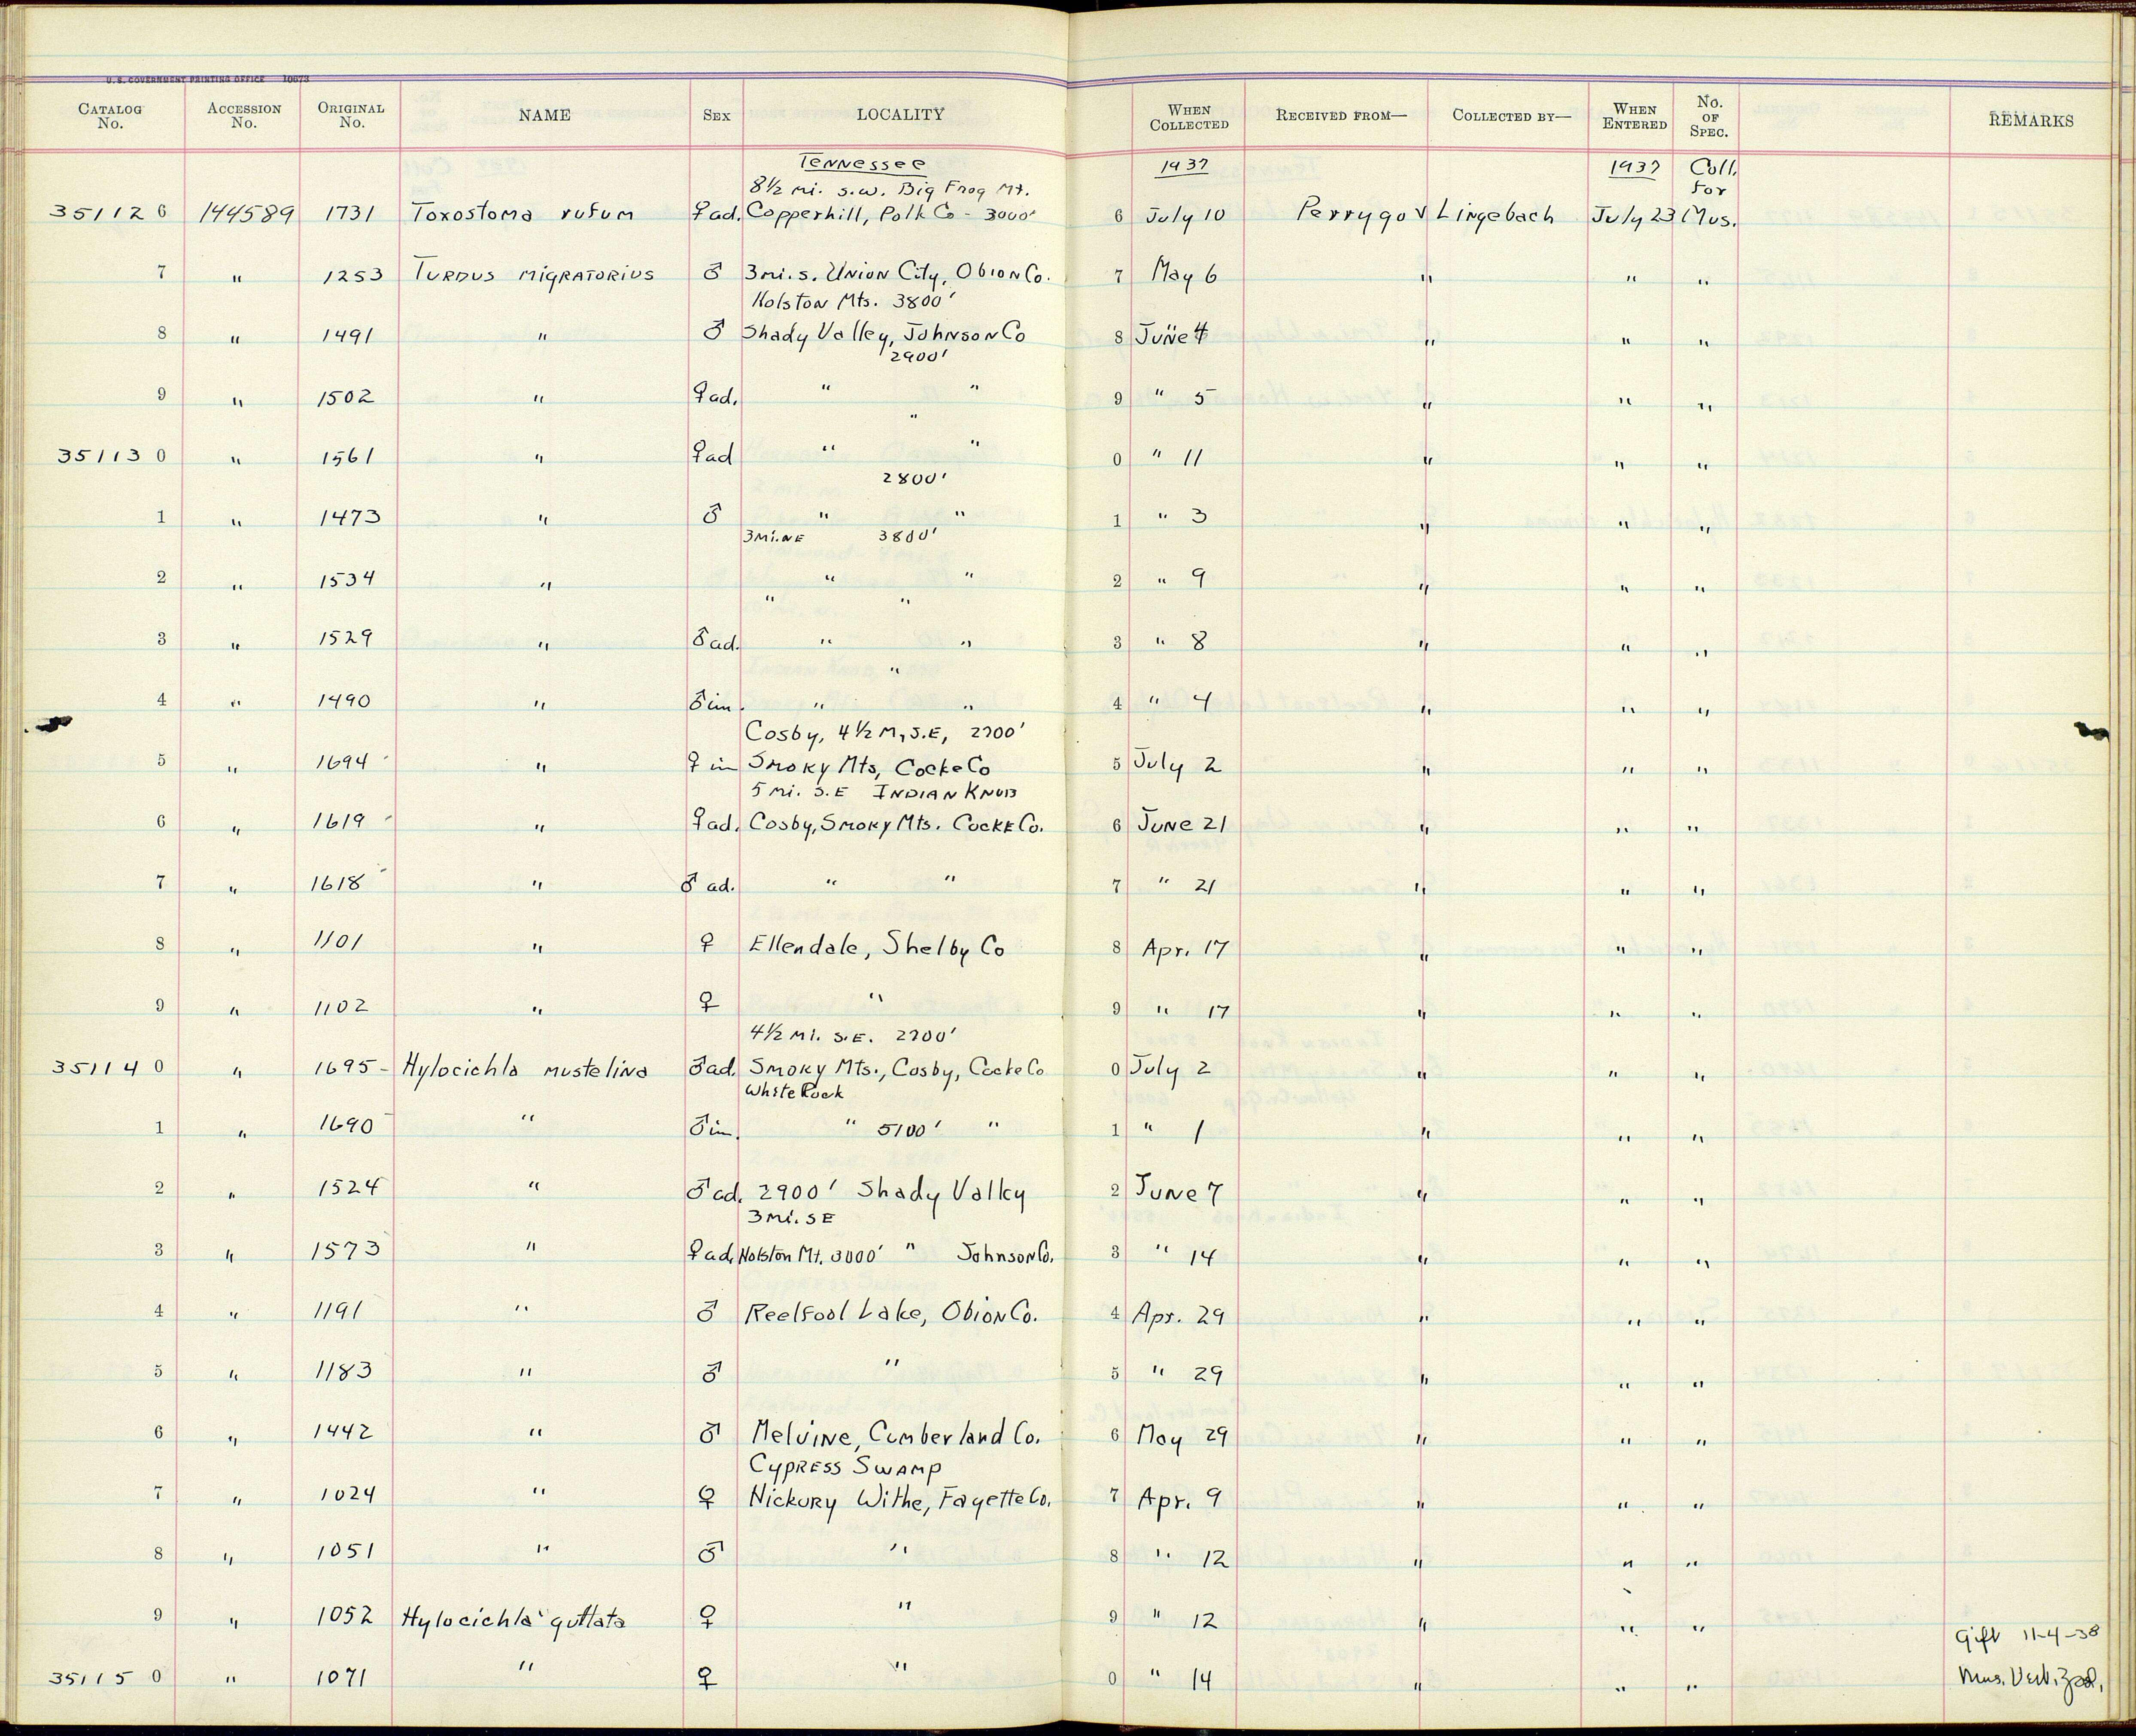 U. S. GOVERNMENT PRINTING OFFICE 10673
CATALOG No. ACCESSION No. ORIGINAL No. NAME SEX LOCALITY WHEN COLLECTED RECEIVED FROM— COLLECTED BY— WHEN ENTERED No. OF SPEC. REMARKS
Tennessee 1937 1937 Coll.
8½ mi. S.W. Big Frog Mt. for
35112 6 144589 1731 Toxostoma rufum ♀ad. Copperhill, Polk Co - 3000' 6 July 10 Perrygo & Lingebach July 23 Mus.
7 " 1253 Turdus migratorius ♂ 3 mi. S. Union City, Obion Co. 7 May 6 " " "
Holston Mts. 3800'
8 " 1491 " ♂ Shady Valley, Johnson Co 8 June 4 " " "
2900'
9 " 1502 " ♀ad. " " 9 " 5 " " "
"
35113 0 " 1561 " ♀ad " " 0 " 11 " " "
2800'
1 " 1473 " ♂ " " 1 " 3 " " "
3 mi. NE 3800'
2 " 1534 " " " 2 " 9 " " "
" "
3 " 1529 " ♂ad. " " 3 " 8 " " "
"
4 " 1490 " ♂im. " " 4 " 4 " " "
Cosby, 4½ M, S.E, 2700'
5 " 1694 " ♀ im Smoky Mts, Cocke Co 5 July 2 " " "
5 mi. S.E Indian Knob
6 " 1619 " ♀ad. Cosby, Smoky Mts. Cocke Co. 6 June 21 " " "
7 " 1618 " ♂ ad. " " 7 " 21 " " "
8 " 1101 " ♀ Ellendale, Shelby Co 8 Apr. 17 " " "
9 " 1102 " ♀ " 9 " 17 " " "
4½ mi. S.E. 2700'
35114 0 " 1695 - Hylocichla mustelina ♂ad. Smoky Mts., Cosby, Cocke Co 0 July 2 " " "
White Rock
1 " 1690 " ♂im. " 5100' " 1 " 1 " " "
2 " 1524 " ♂ad. 2900' Shady Valley 2 June 7 " " "
3 mi. SE
3 " 1573 " ♀ad. Holston Mt. 3000' " Johnson Co. 3 " 14 " " "
4 " 1191 " ♂ Reelfool Lake, Obion Co. 4 Apr. 29 " " "
5 " 1183 " ♂ " 5 " 29 " " "
6 " 1442 " ♂ Melvine, Cumberland Co. 6 May 29 " " "
Cypress Swamp
7 " 1024 " ♀ Hickory Withe, Fayette Co. 7 Apr. 9 " " "
8 " 1051 " ♂ " 8 " 12 " " "
9 " 1052 Hylocichla guttata ♀ " 9 " 12 " " "
Gift 11-4-38
35115 0 " 1071 " ♀ " 0 " 14 " " " Mus. Vert. Zool.